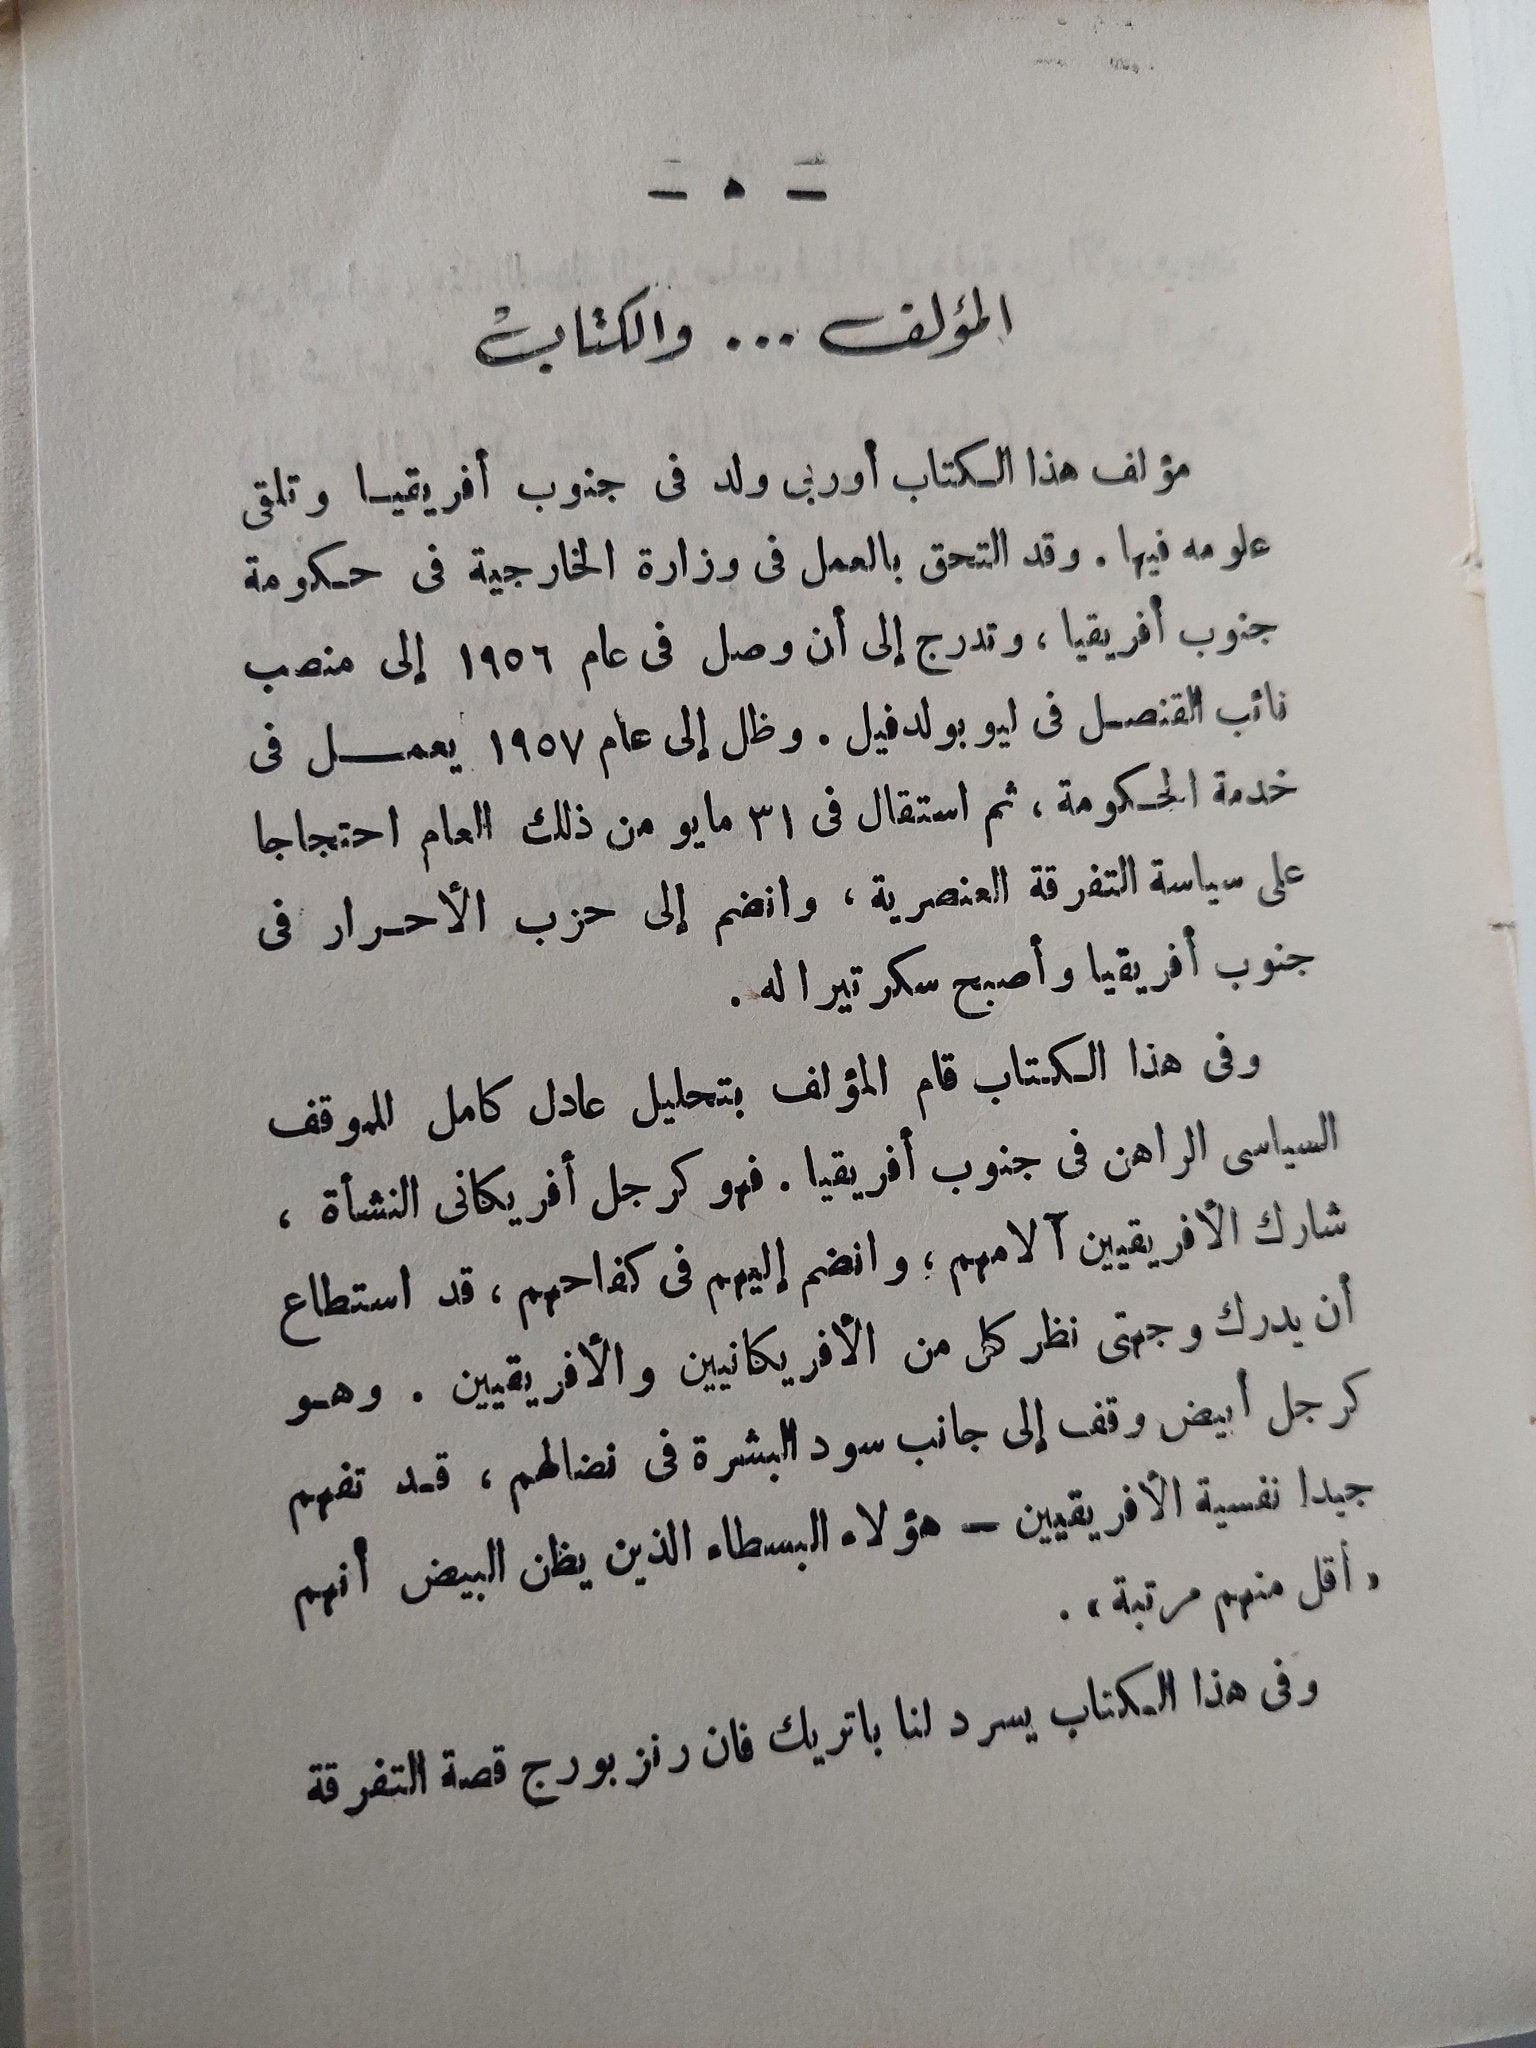 — ه —
المؤلف ... والكتاب
مؤلف هذا الكتاب أوربى ولد فى جنوب أفريقيا وتلقى
علومه فيها . وقد التحق بالعمل فى وزارة الخارجية فى حكومة
جنوب أفريقيا ، وتدرج إلى أن وصل فى عام ١٩٥٦ إلى منصب
نائب القنصل فى ليوبولدفيل . وظل إلى عام ١٩٥٧ يعمل فى
خدمة الحكومة ، ثم استقال فى ٣١ مايو من ذلك العام احتجاجا
على سياسة التفرقة العنصرية ، وانضم إلى حزب الأحرار فى
جنوب أفريقيا وأصبح سكرتيرا له .
وفى هذا الكتاب قام المؤلف بتحليل عادل كامل للموقف
السياسى الراهن فى جنوب أفريقيا . فهو كرجل أفريكانى النشأة ،
شارك الأفريقيين آلامهم ، وانضم إليهم فى كفاحهم ، قد استطاع
أن يدرك وجهتى نظر كل من الأفريكانيين والأفريقيين . وهو
كرجل أبيض وقف إلى جانب سود البشرة فى نضالهم ، قد تفهم
جيدا نفسية الأفريقيين — هؤلاء البسطاء الذين يظن البيض أنهم
« أقل منهم مرتبة » .
وفى هذا الكتاب يسرد لنا باتريك فان رنزبورج قصة التفرقة